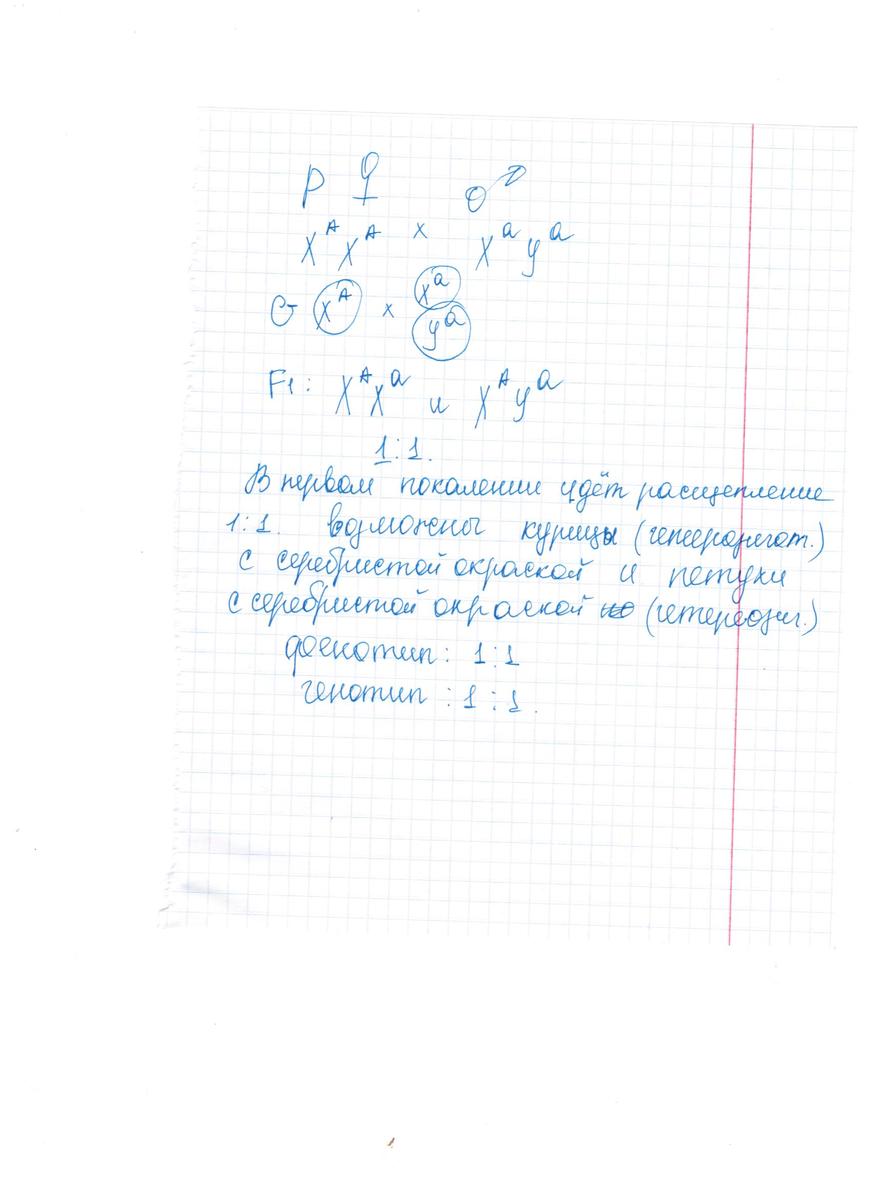 P ♀ ♂
X^A X^A × X^a y^a
G X^A × X^a
y^a
F1: X^A X^a и X^A y^a
1:1.
В первом покалении идёт расщепление
1:1. возможны курицы (гетерозигот.)
с серебристой окраской и петухи
с серебристой окраской (гетерозиг.)
фоенотип: 1:1
генотип : 1:1.